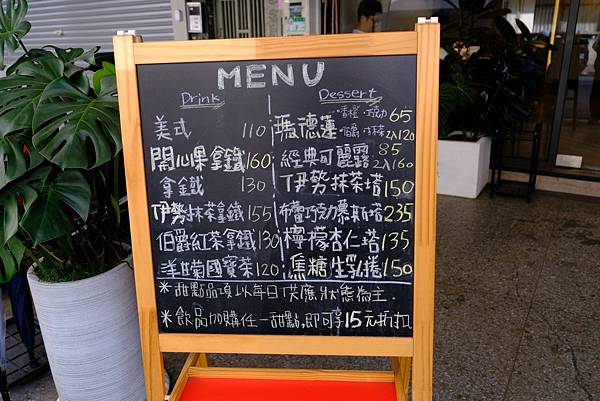 MENU
Drink Dessert
美式 110
開心果拿鐵 160
拿鐵 130
伊勢抹茶拿鐵 155
伯爵紅茶拿鐵 130
國寶茶 120
瑪德蓮 香橙 65
2入120
經典可麗露 85
2入160
伊勢抹茶塔 150
布蕾巧克力慕斯塔 235
檸檬杏仁塔 135
焦糖生乳捲 150
*甜點品項以每日供應狀態為主.
*飲品加購任一甜點,即可享15元折扣